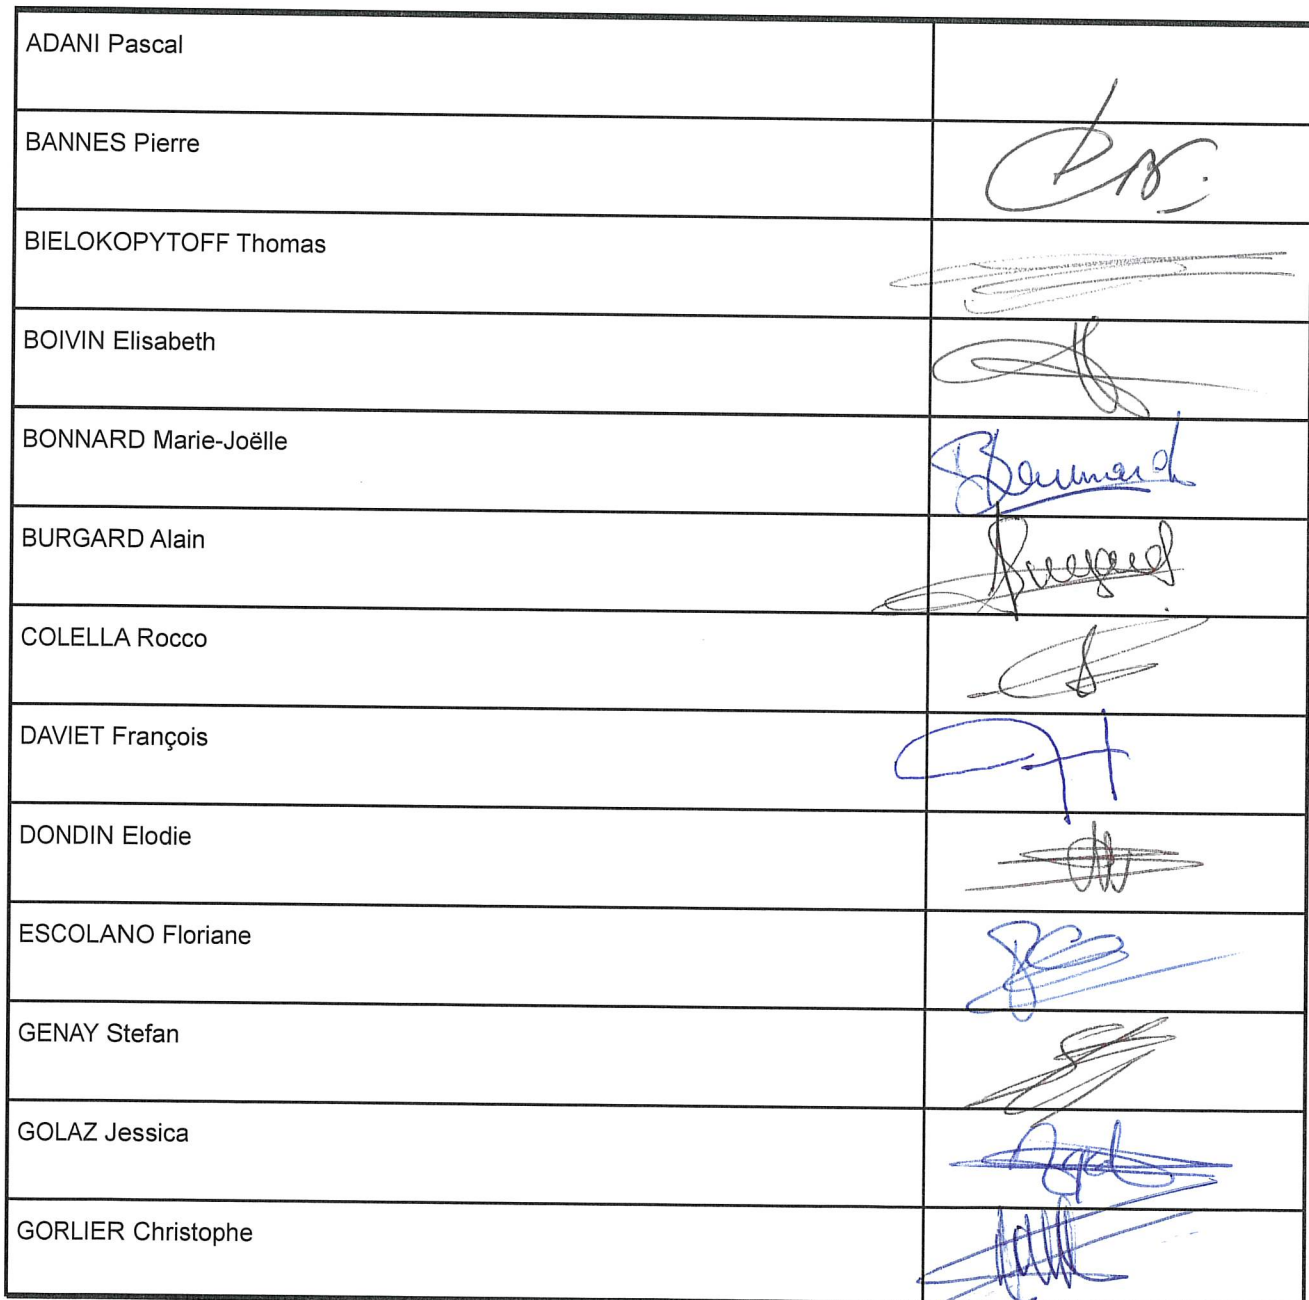 ADANI Pascal
BANNES Pierre
BIELOKOPYTOFF Thomas
BOIVIN Elisabeth
BONNARD Marie-Joëlle
BURGARD Alain
COLELLA Rocco
DAVIET François
DONDIN Elodie
ESCOLANO Floriane
GENAY Stefan
GOLAZ Jessica
GORLIER Christophe